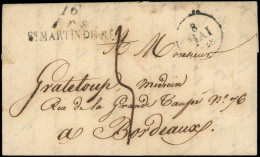 16
St MARTIN-DE-RÉ
8
MAI
A Monsieur
Grateloup, Médecin
Rue de la Grande Taupe No 76
a Bordeaux